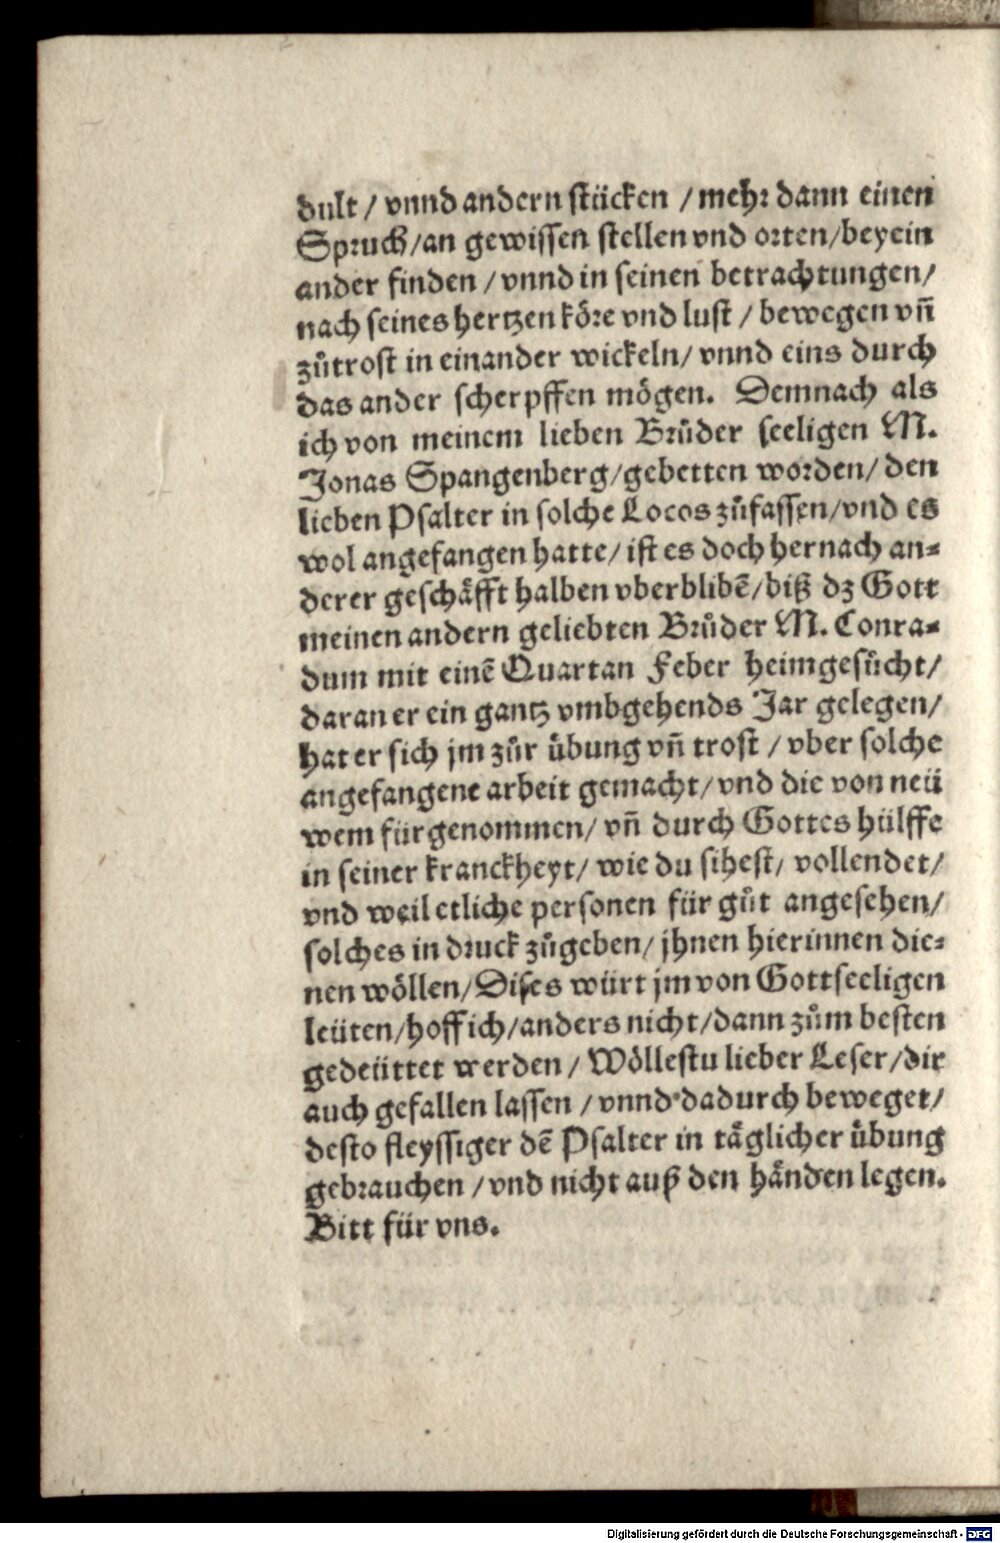 dult / vnnd andern stücken / mehr dann einen
Spruch/an gewissen stellen vnd orten/bey ein
ander finden / vnnd in seinen betrachtungen/
nach seines hertzen köre vnd lust / bewegen vñ
zůtrost in einander wickeln/ vnnd eins durch
das ander scherpffen mögen. Demnach als
ich von meinem lieben Brůder seeligen M.
Jonas Spangenberg/gebetten worden/ den
lieben Psalter in solche Locos zůfassen/vnd es
wol angefangen hatte/ ist es doch hernach an⸗
derer geschäfft halben vberblibẽ/biß dz Gott
meinen andern geliebten Brůder M. Conra⸗
dum mit einẽ Quartan Feber heimgesůcht/
daran er ein gantz vmbgehends Jar gelegen/
hat er sich jm zůr übung vñ trost / vber solche
angefangene arbeit gemacht/vnd die von neü
wem fürgenommen/ vñ durch Gottes hülffe
in seiner kranckheyt/ wie du sihest/ vollendet/
vnd weil etliche personen für gůt angesehen/
solches in druck zůgeben/ jhnen hierinnen die⸗
nen wöllen/Dises würt jm von Gottseeligen
leüten/hoff ich/anders nicht/dann zům besten
gedeüttet werden / Wöllestu lieber Leser/dir
auch gefallen lassen / vnnd dadurch beweget/
desto fleyssiger dẽ Psalter in täglicher übung
gebrauchen / vnd nicht auß den händen legen.
Bitt für vns.
Digitalisierung gefördert durch die Deutsche Forschungsgemeinschaft - DFG